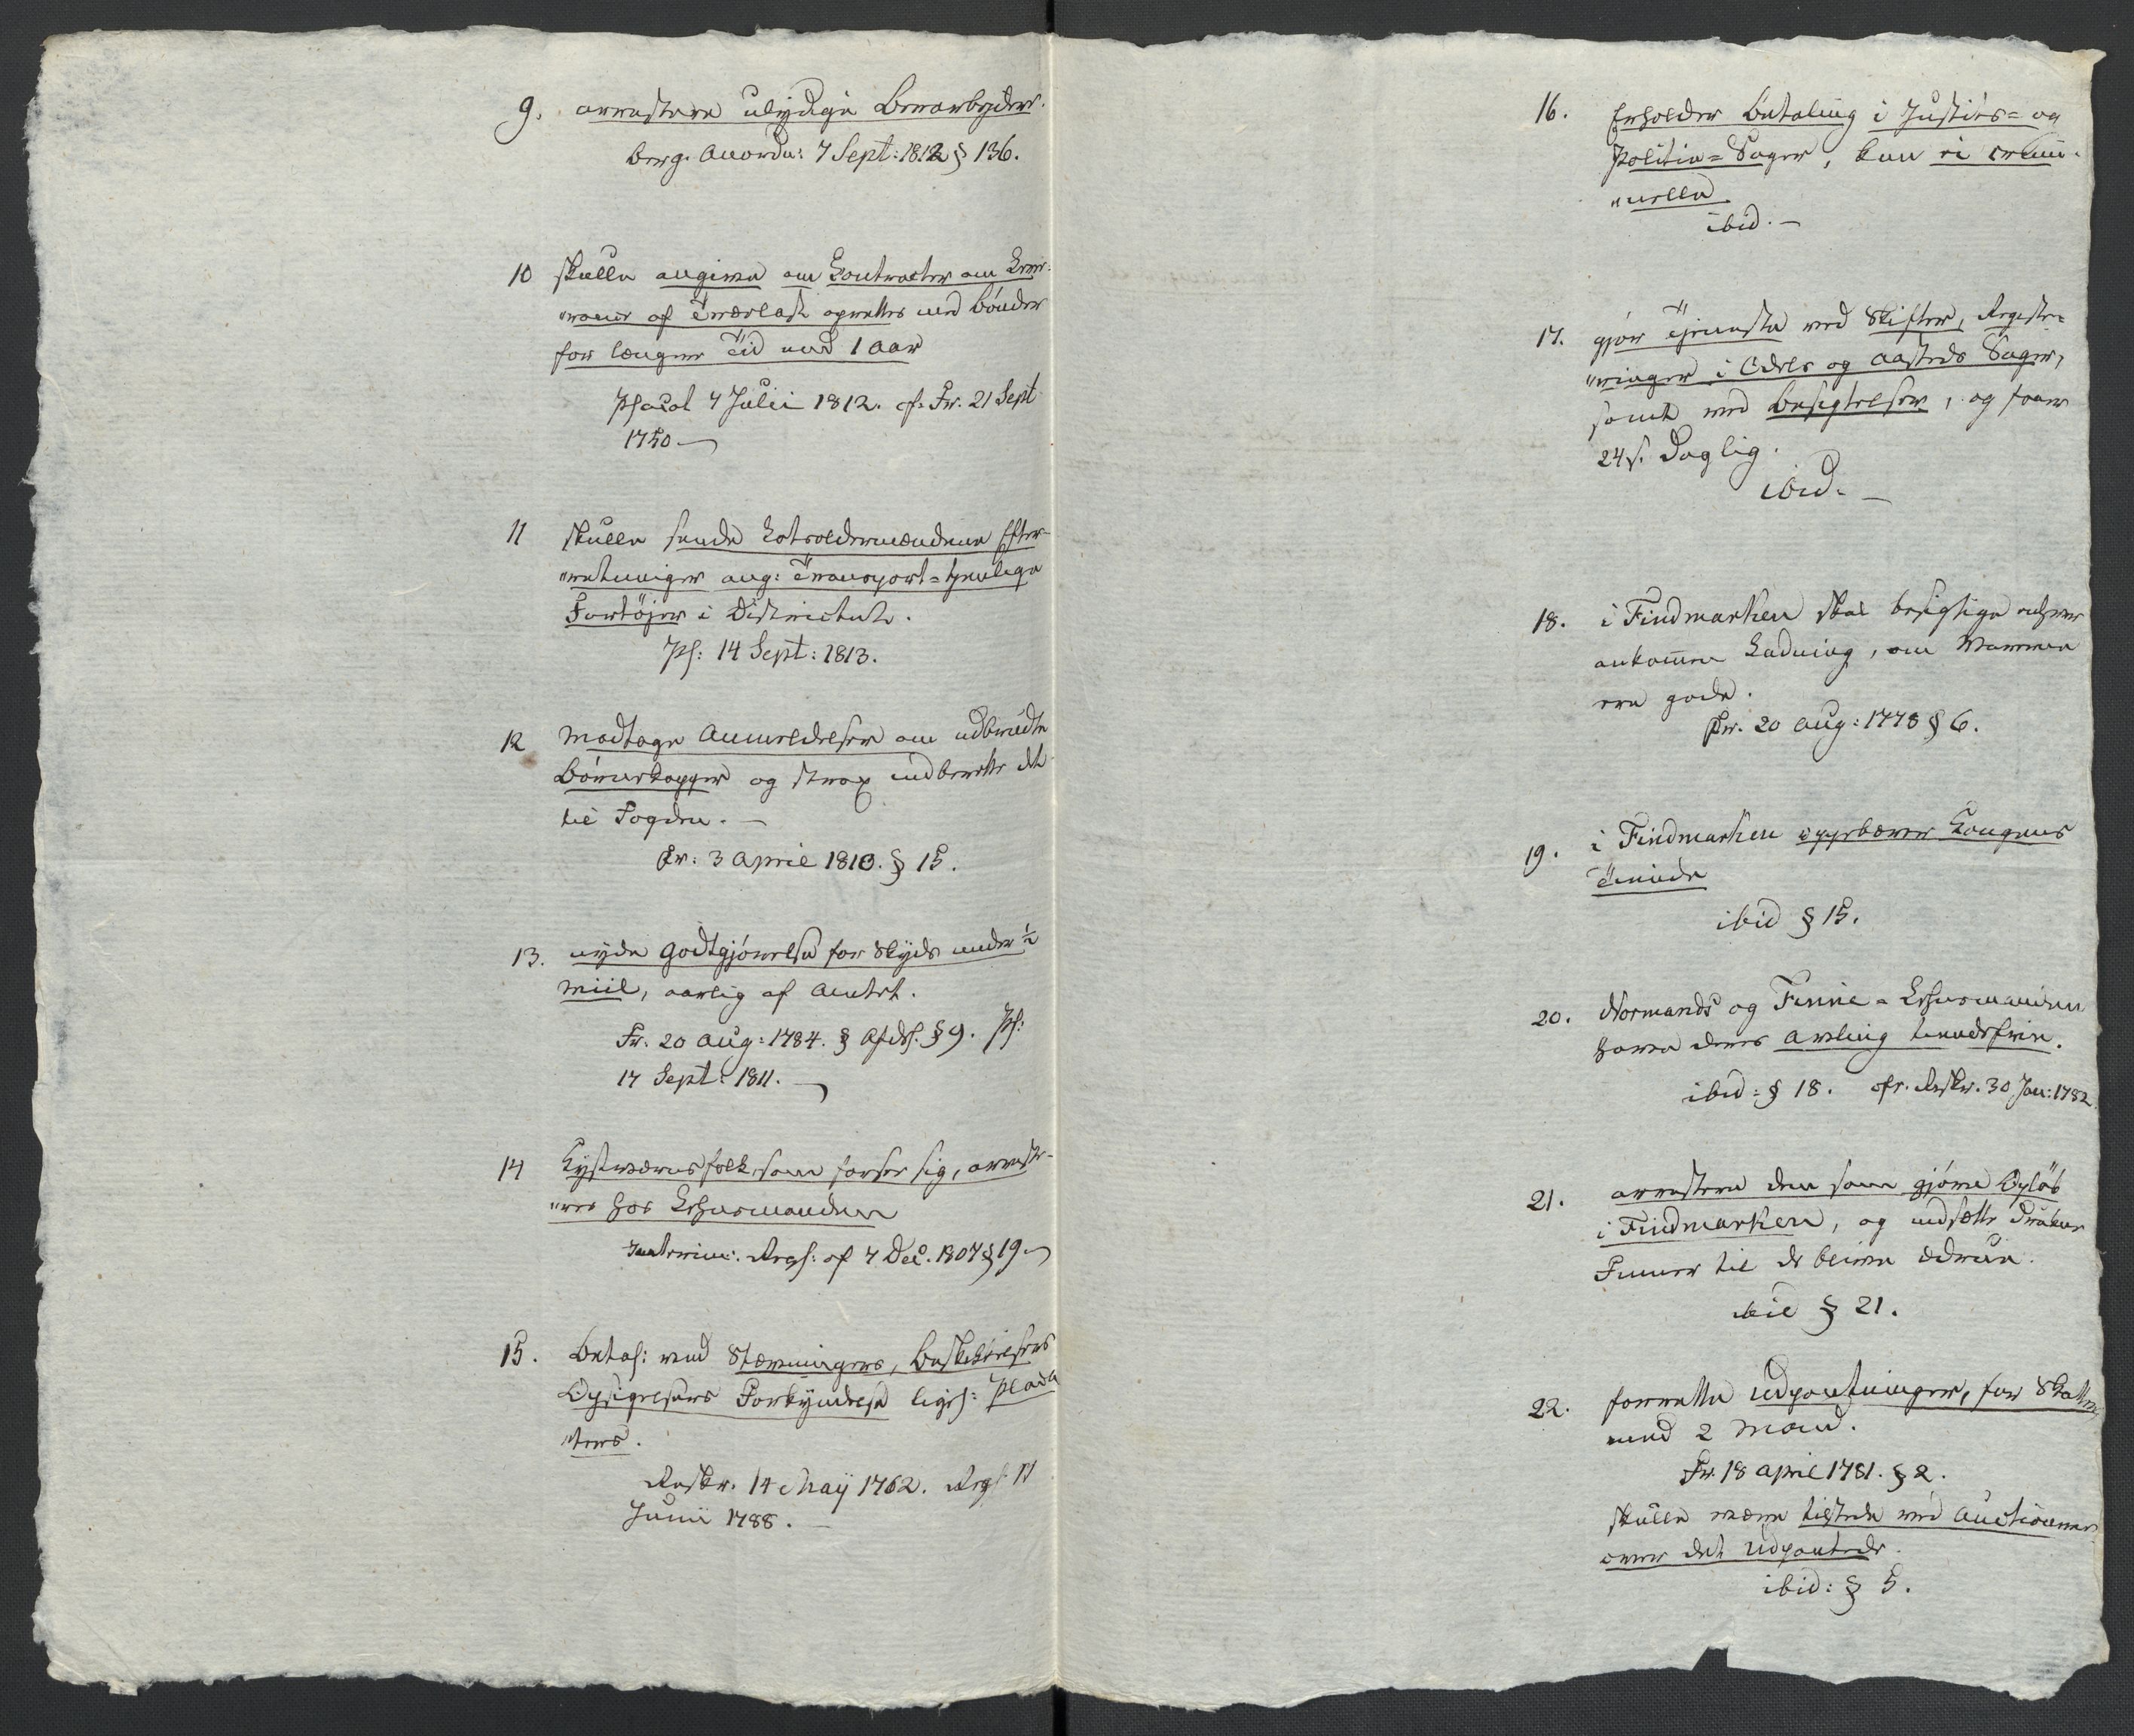 9. arrestere ulydige Brnarbejdere.
Berg. Anordn: 7 Sept: 1812 § 136.
10 skulle angive om Contracter om Leve-
"rance af Trælast oprettes med Bönder
for længere Tid end 1 Aar
Placat 4 Julii 1812. cf. Fr. 21 Sept
1750 —
11 skulle sende Lodsoldermændene Efter-
"retninger ang: Transport-tjenlige
Fartöjer i Districtet.
Pl: 14 Sept: 1813.
12 modtage Anmeldelser om udbrudte
Börnekopper og strax indberette det
til Fogden. —
Fr: 3 April 1810. § 15.
13. nyde Godtgjörelse for Skyds under ½
Miil, aarlig af Amtet.
Fr. 20 Aug: 1784. § Afds. § 9. Pl:
17 Sept: 1811. —
14 Kystværnsfolk, som forser sig, arreste-
"res hos Lehnsmanden
Interims: Regl: af 7 Dec. 1807 § 19 —
15. Betal: ved Stævningers, Beskikkelsers
Opsigelsers Forkyndelse ligel: Placa
"ters.
Reskr. 14 Maij 1762. Regl 11
Junii 1788. —
16. Erholder Betaling i Justits- og
Politie-Sager, kun ei crimi-
"nelle
ibid. —
17. gjör Tjeneste ved Skifter, Registe-
"ringer i Odels og Aasteds Sager,
samt ved Besigtelser, og faaer
24 s. Daglig.
ibid. —
18. i Findmarken skal besigtige enhver
ankommen Ladning, om Varerne
ere gode.
Fr. 20 Aug: 1778 § 6.
19. i Findmarken oppebærer Kongens
Tiende
ibid § 15.
20. Normands og Finne-Lehnsmænden
have deres Avling tiendefrie.
ibid: § 18. cfr. Reskr. 30 Jan: 1782.
21. arrestere den som gjöre Oplöb
i Findmarken, og indsætte drukne
Finner til de bliver ædrue.
ibid § 21.
22. forrette Udpantninger, for Skatter
med 2 Mænd.
Fr. 18 April 1781. § 2.
skulle være tilstede ved Auctioner
over det Udpantede.
ibid: § 5.